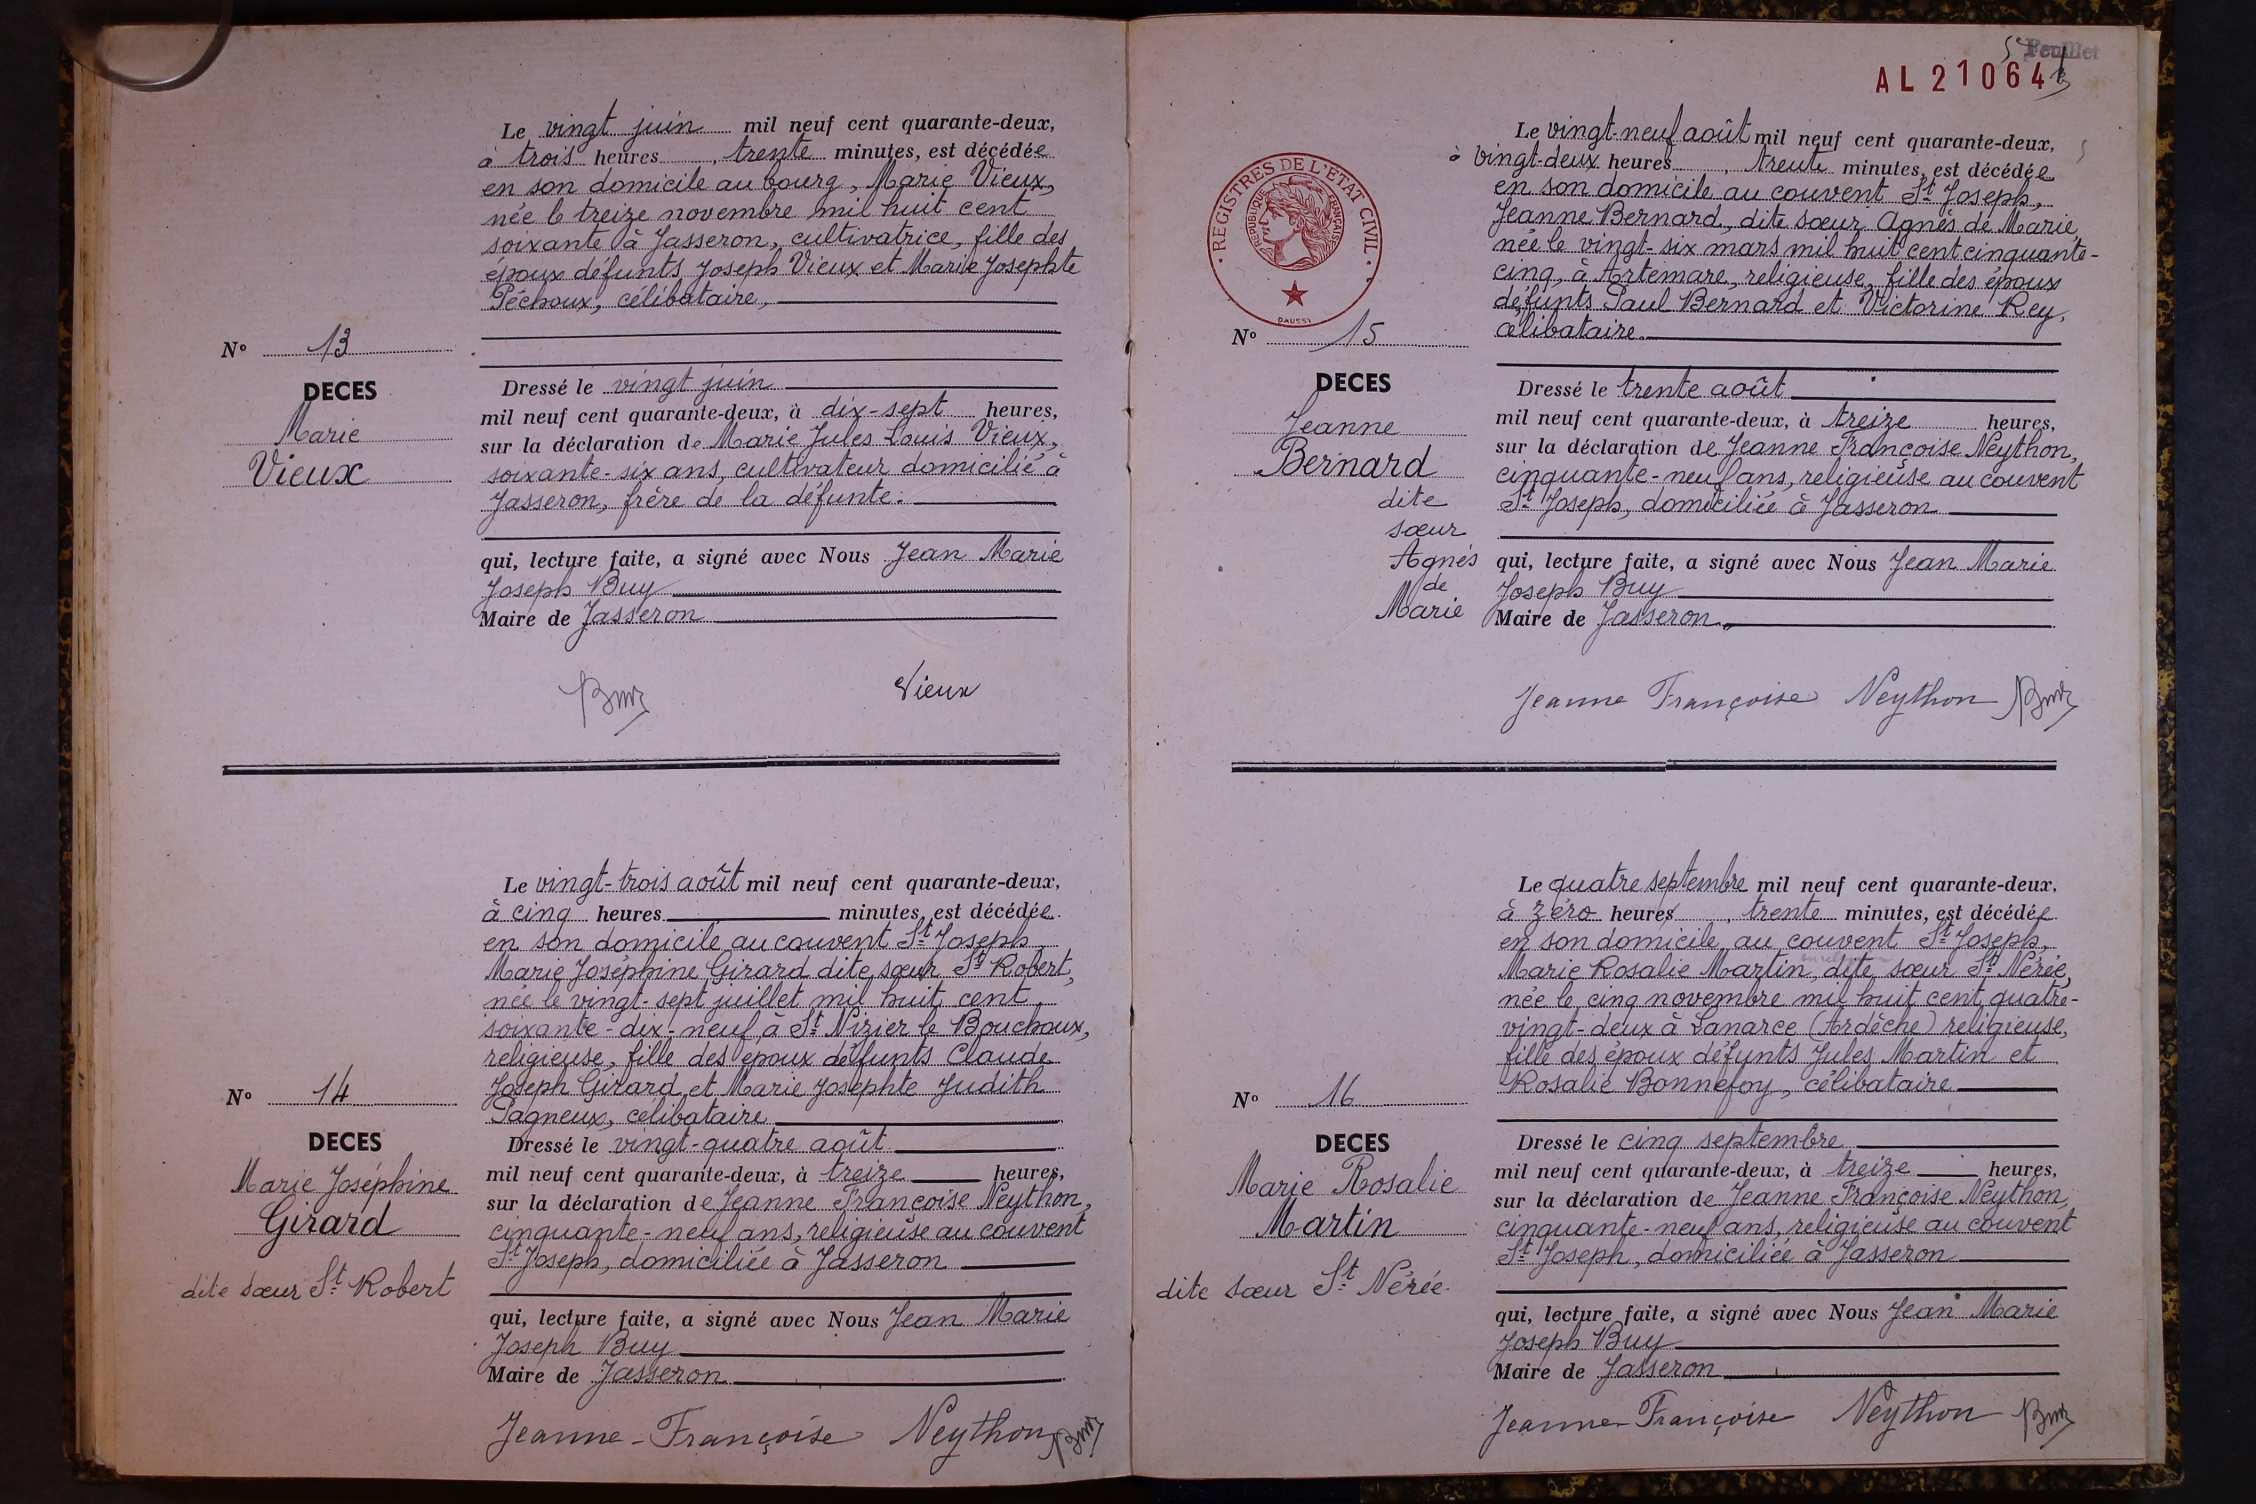 Le vingt juin mil neuf cent quarante-deux,
à trois heures, trente minutes, est décédée
en son domicile au bourg, Marie Vieux,
née le treize novembre mil huit cent
soixante à Jasseron, cultivatrice, fille des
époux défunts Joseph Vieux et Marie Josephte
Péchoux, célibataire,
N° 13
DECES
Marie
Vieux
Dressé le vingt juin
mil neuf cent quarante-deux, à dix-sept heures,
sur la déclaration de Marie Jules Louis Vieux,
soixante-six ans, cultivateur domicilié à
Jasseron, frère de la défunte.
qui, lecture faite, a signé avec Nous Jean Marie
Joseph Buy
Maire de Jasseron
Buy Vieux
Le vingt-trois août mil neuf cent quarante-deux,
à cinq heures minutes, est décédée
en son domicile au couvent St Joseph,
Marie Joséphine Girard dite sœur St Robert,
née le vingt-sept juillet mil huit cent
soixante-dix-neuf à St Nizier le Bouchoux,
religieuse, fille des époux défunts Claude
Joseph Girard et Marie Josephte Judith
Pagneux, célibataire
N° 14
DECES
Marie Joséphine
Girard
dite sœur St Robert
Dressé le vingt-quatre août
mil neuf cent quarante-deux, à treize heures,
sur la déclaration de Jeanne Françoise Neython,
cinquante-neuf ans, religieuse au couvent
St Joseph, domiciliée à Jasseron
qui, lecture faite, a signé avec Nous Jean Marie
Joseph Buy
Maire de Jasseron
Jeanne-Françoise Neython Buy
Feuillet
AL 210641
REGISTRES DE L'ETAT CIVIL
REPUBLIQUE FRANÇAISE
DAUSSY
Le vingt-neuf août mil neuf cent quarante-deux,
à vingt-deux heures, trente minutes, est décédée
en son domicile au couvent St Joseph,
Jeanne Bernard, dite sœur Agnès de Marie,
née le vingt-six mars mil huit cent cinquante-
cinq, à Artemare, religieuse, fille des époux
défunts Paul Bernard et Victorine Rey,
célibataire.
N° 15
DECES
Jeanne
Bernard
dite
sœur
Agnès
de
Marie
Dressé le trente août
mil neuf cent quarante-deux, à treize heures,
sur la déclaration de Jeanne Françoise Neython,
cinquante-neuf ans, religieuse au couvent
St Joseph, domiciliée à Jasseron
qui, lecture faite, a signé avec Nous Jean Marie
Joseph Buy
Maire de Jasseron
Jeanne Françoise Neython Buy
Le quatre septembre mil neuf cent quarante-deux,
à zéro heures, trente minutes, est décédée
en son domicile au couvent St Joseph,
Marie Rosalie Martin, dite sœur St Nérée,
née le cinq novembre mil huit cent quatre-
vingt-deux à Lanarce (Ardèche) religieuse,
fille des époux défunts Jules Martin et
Rosalie Bonnefoy, célibataire
N° 16
DECES
Marie Rosalie
Martin
dite sœur St Nérée.
Dressé le cinq septembre
mil neuf cent quarante-deux, à treize heures,
sur la déclaration de Jeanne Françoise Neython,
cinquante-neuf ans, religieuse au couvent
St Joseph, domiciliée à Jasseron
qui, lecture faite, a signé avec Nous Jean Marie
Joseph Buy
Maire de Jasseron
Jeanne-Françoise Neython Buy